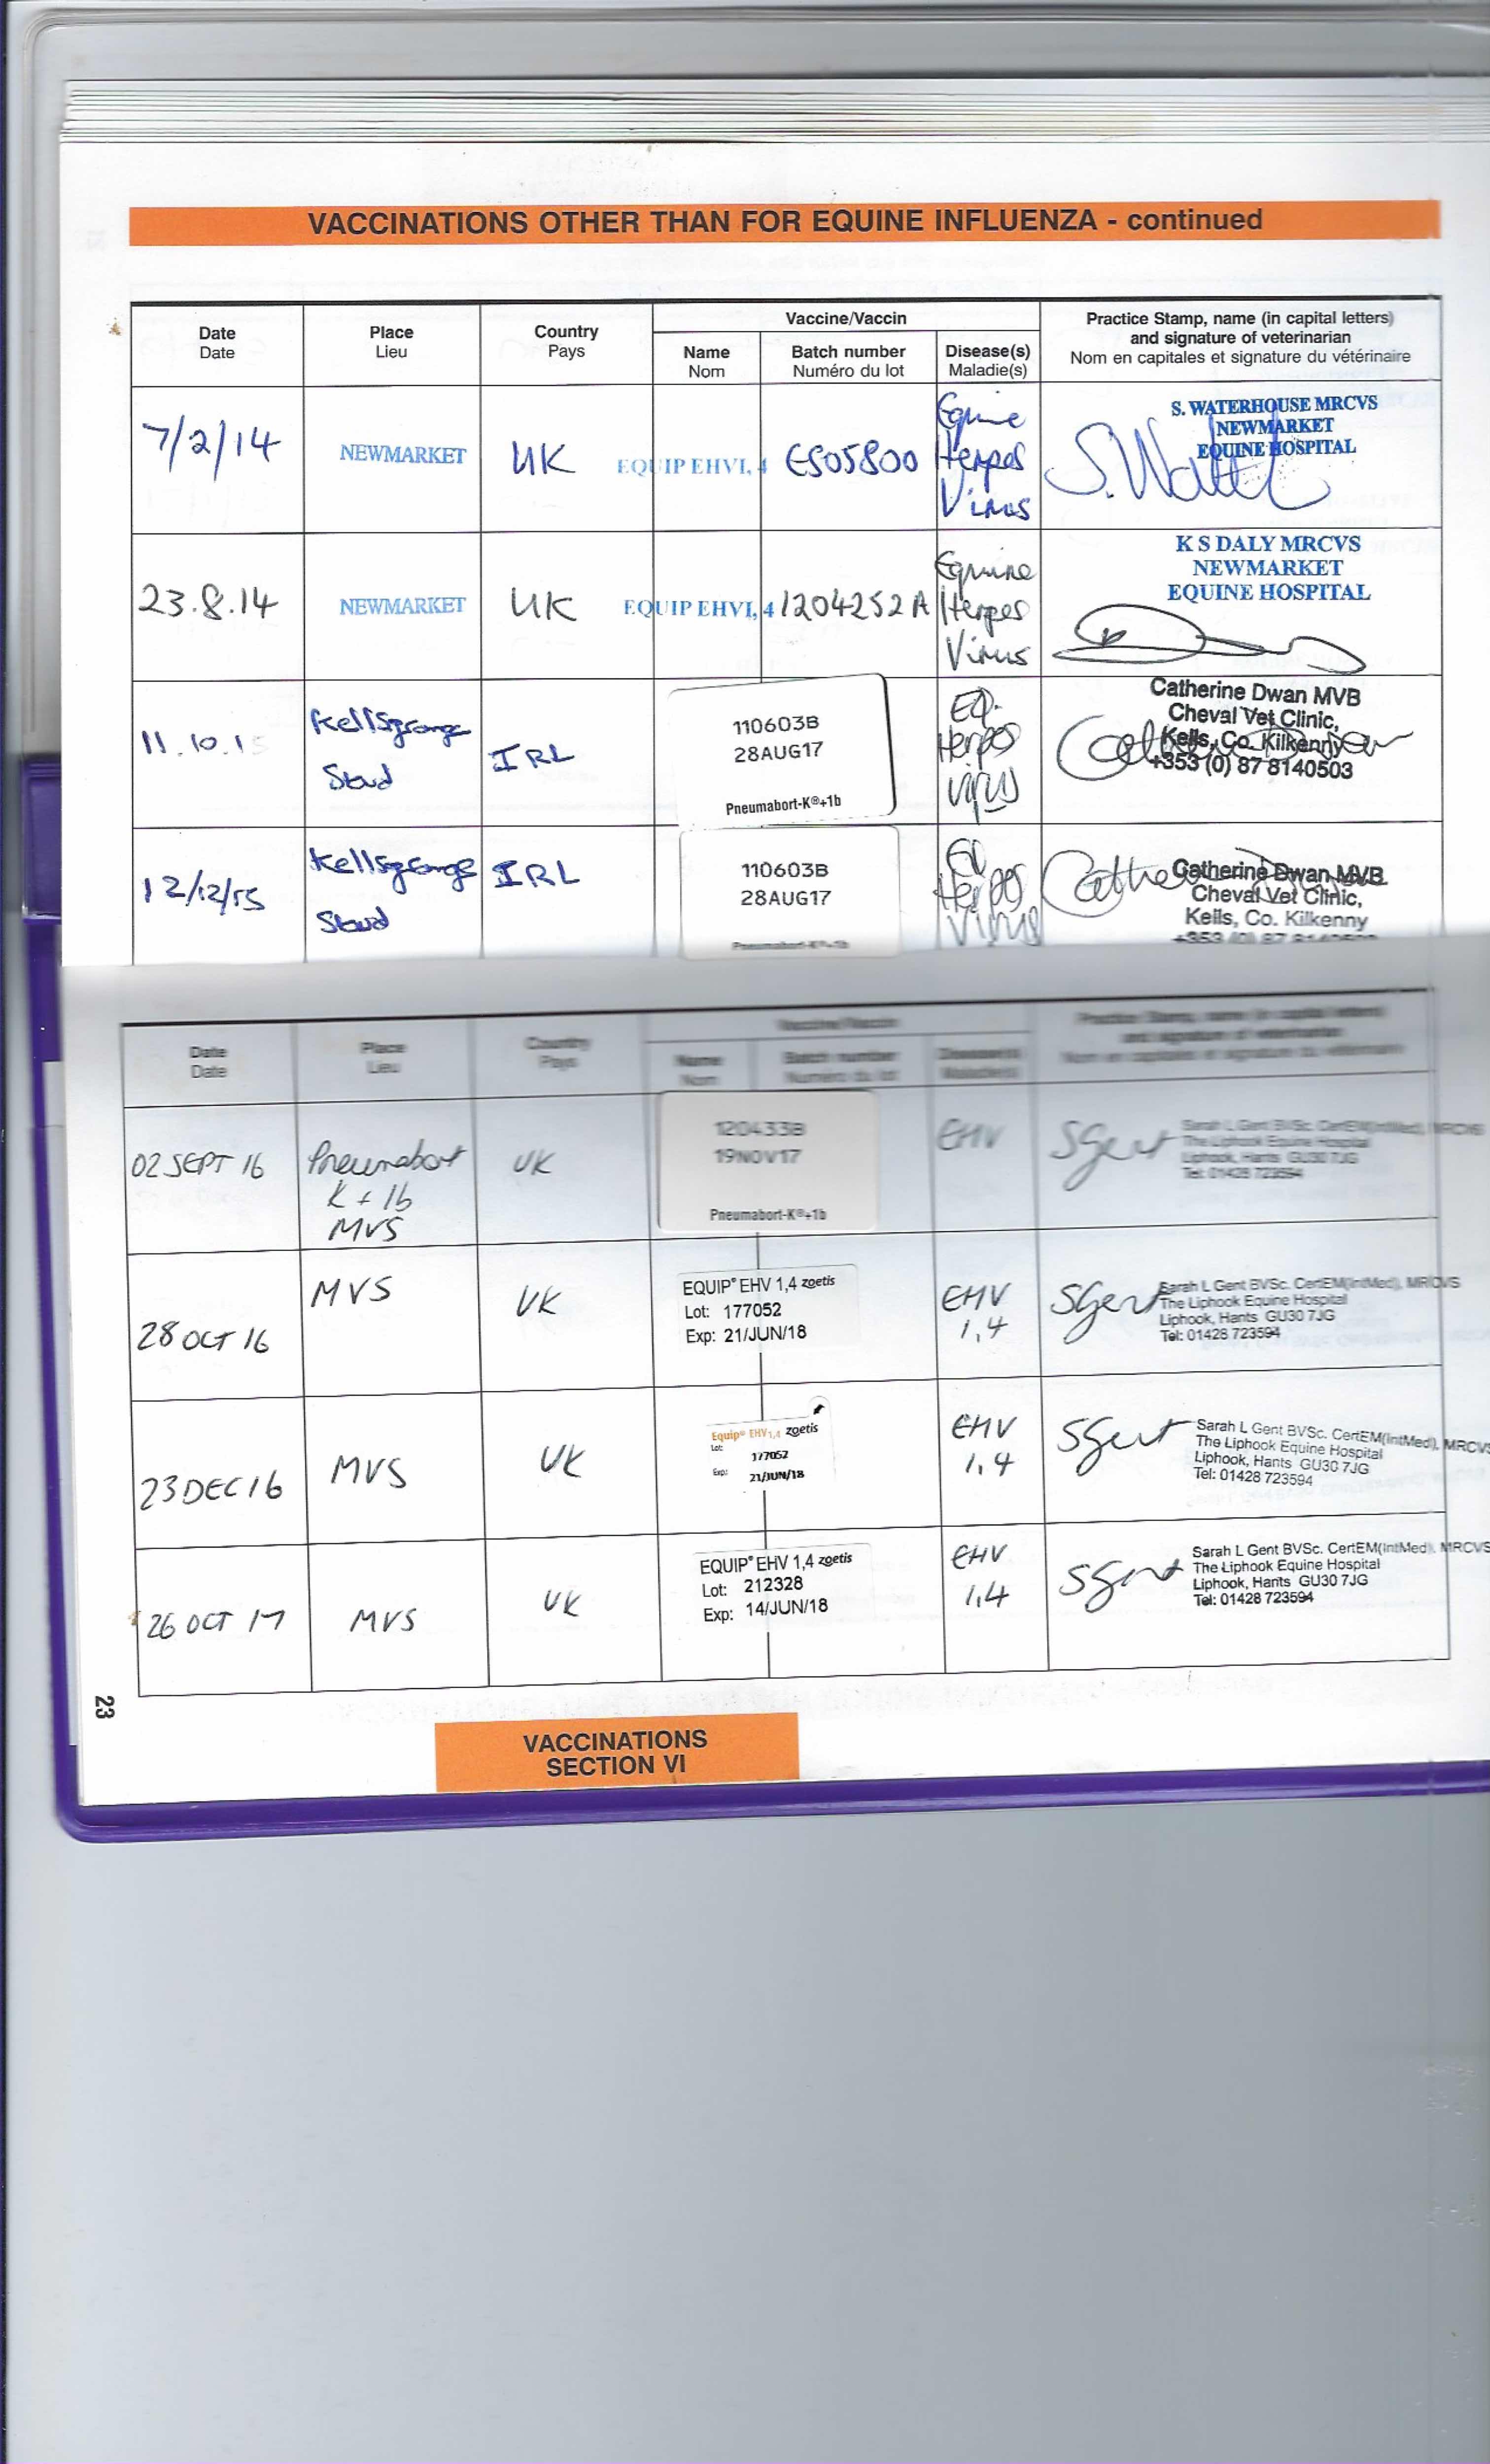 VACCINATIONS OTHER THAN FOR EQUINE INFLUENZA - continued
Date
Date
Place
Lieu
Country
Pays
Vaccine/Vaccin
Name
Nom
Batch number
Numéro du lot
Disease(s)
Maladie(s)
Practice Stamp, name (in capital letters)
and signature of veterinarian
Nom en capitales et signature du vétérinaire
7/2/14
NEWMARKET
UK
EQUIP EHV1, 4
ES05800
Equine
Herpes
Virus
S. WATERHOUSE MRCVS
NEWMARKET
EQUINE HOSPITAL
23.8.14
NEWMARKET
UK
EQUIP EHV1, 4
1204252A
Equine
Herpes
Virus
K S DALY MRCVS
NEWMARKET
EQUINE HOSPITAL
11.10.15
Kellsgrange
Stud
IRL
110603B
28AUG17
Pneumabort-K®+1b
EQ.
Herpes
Virus
Catherine Dwan MVB
Cheval Vet Clinic,
Kells, Co. Kilkenny
+353 (0) 87 8140503
12/12/15
Kellsgrange
Stud
IRL
110603B
28AUG17
Pneumabort-K®+1b
EQ
Herpes
Virus
Catherine Dwan MVB
Cheval Vet Clinic,
Kells, Co. Kilkenny
+353 (0) 87 8140503
Date
Date
Place
Lieu
Country
Pays
Vaccine/Vaccin
Name
Nom
Batch number
Numéro du lot
Disease(s)
Maladie(s)
Practice Stamp, name (in capital letters)
and signature of veterinarian
Nom en capitales et signature du vétérinaire
02 SEPT 16
Pneumabort
K + 1b
MVS
UK
120433B
19NOV17
Pneumabort-K®+1b
EHV
SGent
Sarah L Gent BVSc. CertEM(IntMed), MRCVS
The Liphook Equine Hospital
Liphook, Hants GU30 7JG
Tel: 01428 723594
28 OCT 16
MVS
UK
EQUIP® EHV 1,4 zoetis
Lot: 177052
Exp: 21/JUN/18
EHV
1,4
SGent
Sarah L Gent BVSc. CertEM(IntMed), MRCVS
The Liphook Equine Hospital
Liphook, Hants GU30 7JG
Tel: 01428 723594
23 DEC 16
MVS
UK
Equip® EHV1,4 zoetis
Lot: 177052
Exp: 21/JUN/18
EHV
1,4
SGent
Sarah L Gent BVSc. CertEM(IntMed), MRCVS
The Liphook Equine Hospital
Liphook, Hants GU30 7JG
Tel: 01428 723594
26 OCT 17
MVS
UK
EQUIP® EHV 1,4 zoetis
Lot: 212328
Exp: 14/JUN/18
EHV
1,4
SGent
Sarah L Gent BVSc. CertEM(IntMed), MRCVS
The Liphook Equine Hospital
Liphook, Hants GU30 7JG
Tel: 01428 723594
23
VACCINATIONS
SECTION VI